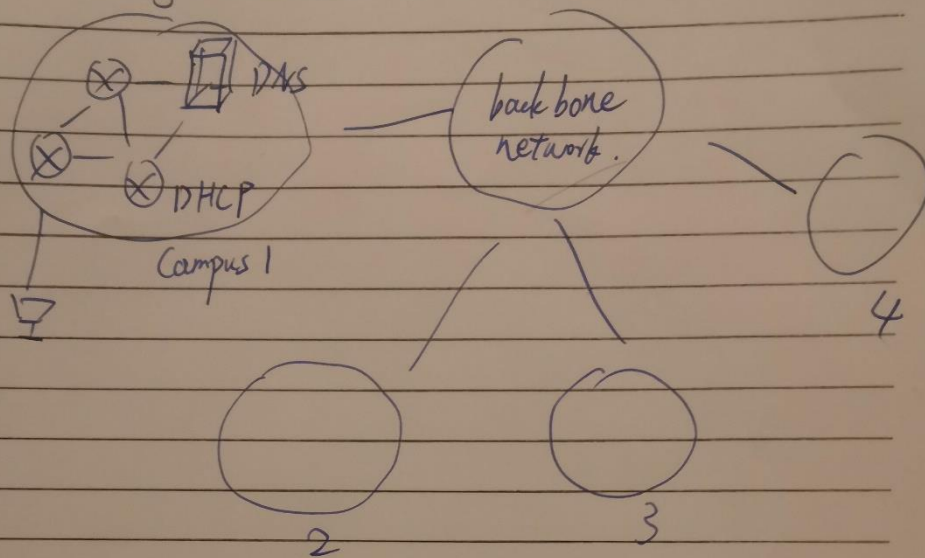 DNS
DHCP
Campus 1
backbone
network.
4
2
3